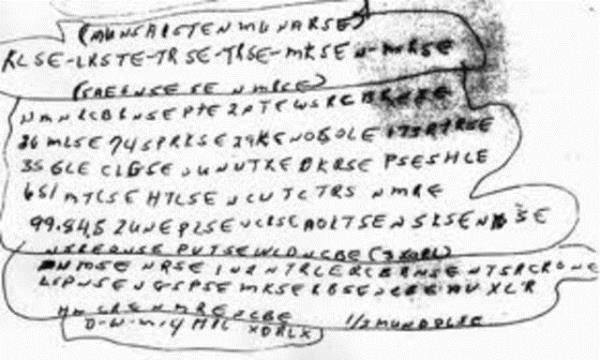 (MUNSAISTENMUNARSE)
RLSE-LRSTE-TRSE-TRSE-MKSEN-MRSE
(SAEGNSE SE NMRSE)
NMNRCBRNSEPTE2PTEWSRCBRNSE
26 MLSE 74SPRKSE29KENOSOLE173RTRSE
35 GLE CLGSE UUNUTXE DKRSE PSESHLE
651 MTCSE HTLSE NCUTCTRS NMRE
99.84S ZUNE PLSE NCRSE AOLTSE NSKSENBSE
NSREONSE PUTSE WLD NCBE (3XORL)
NMSE NRSE IN2NTRLERCBRNSE NTSRCRONE
LSPNSE NGSPSE MKSE RBSE NCBE AUXLR
HM CRE NMRE NCBE 1/2 MUNDDLSE
D-W-M-4 MIL XDRLX